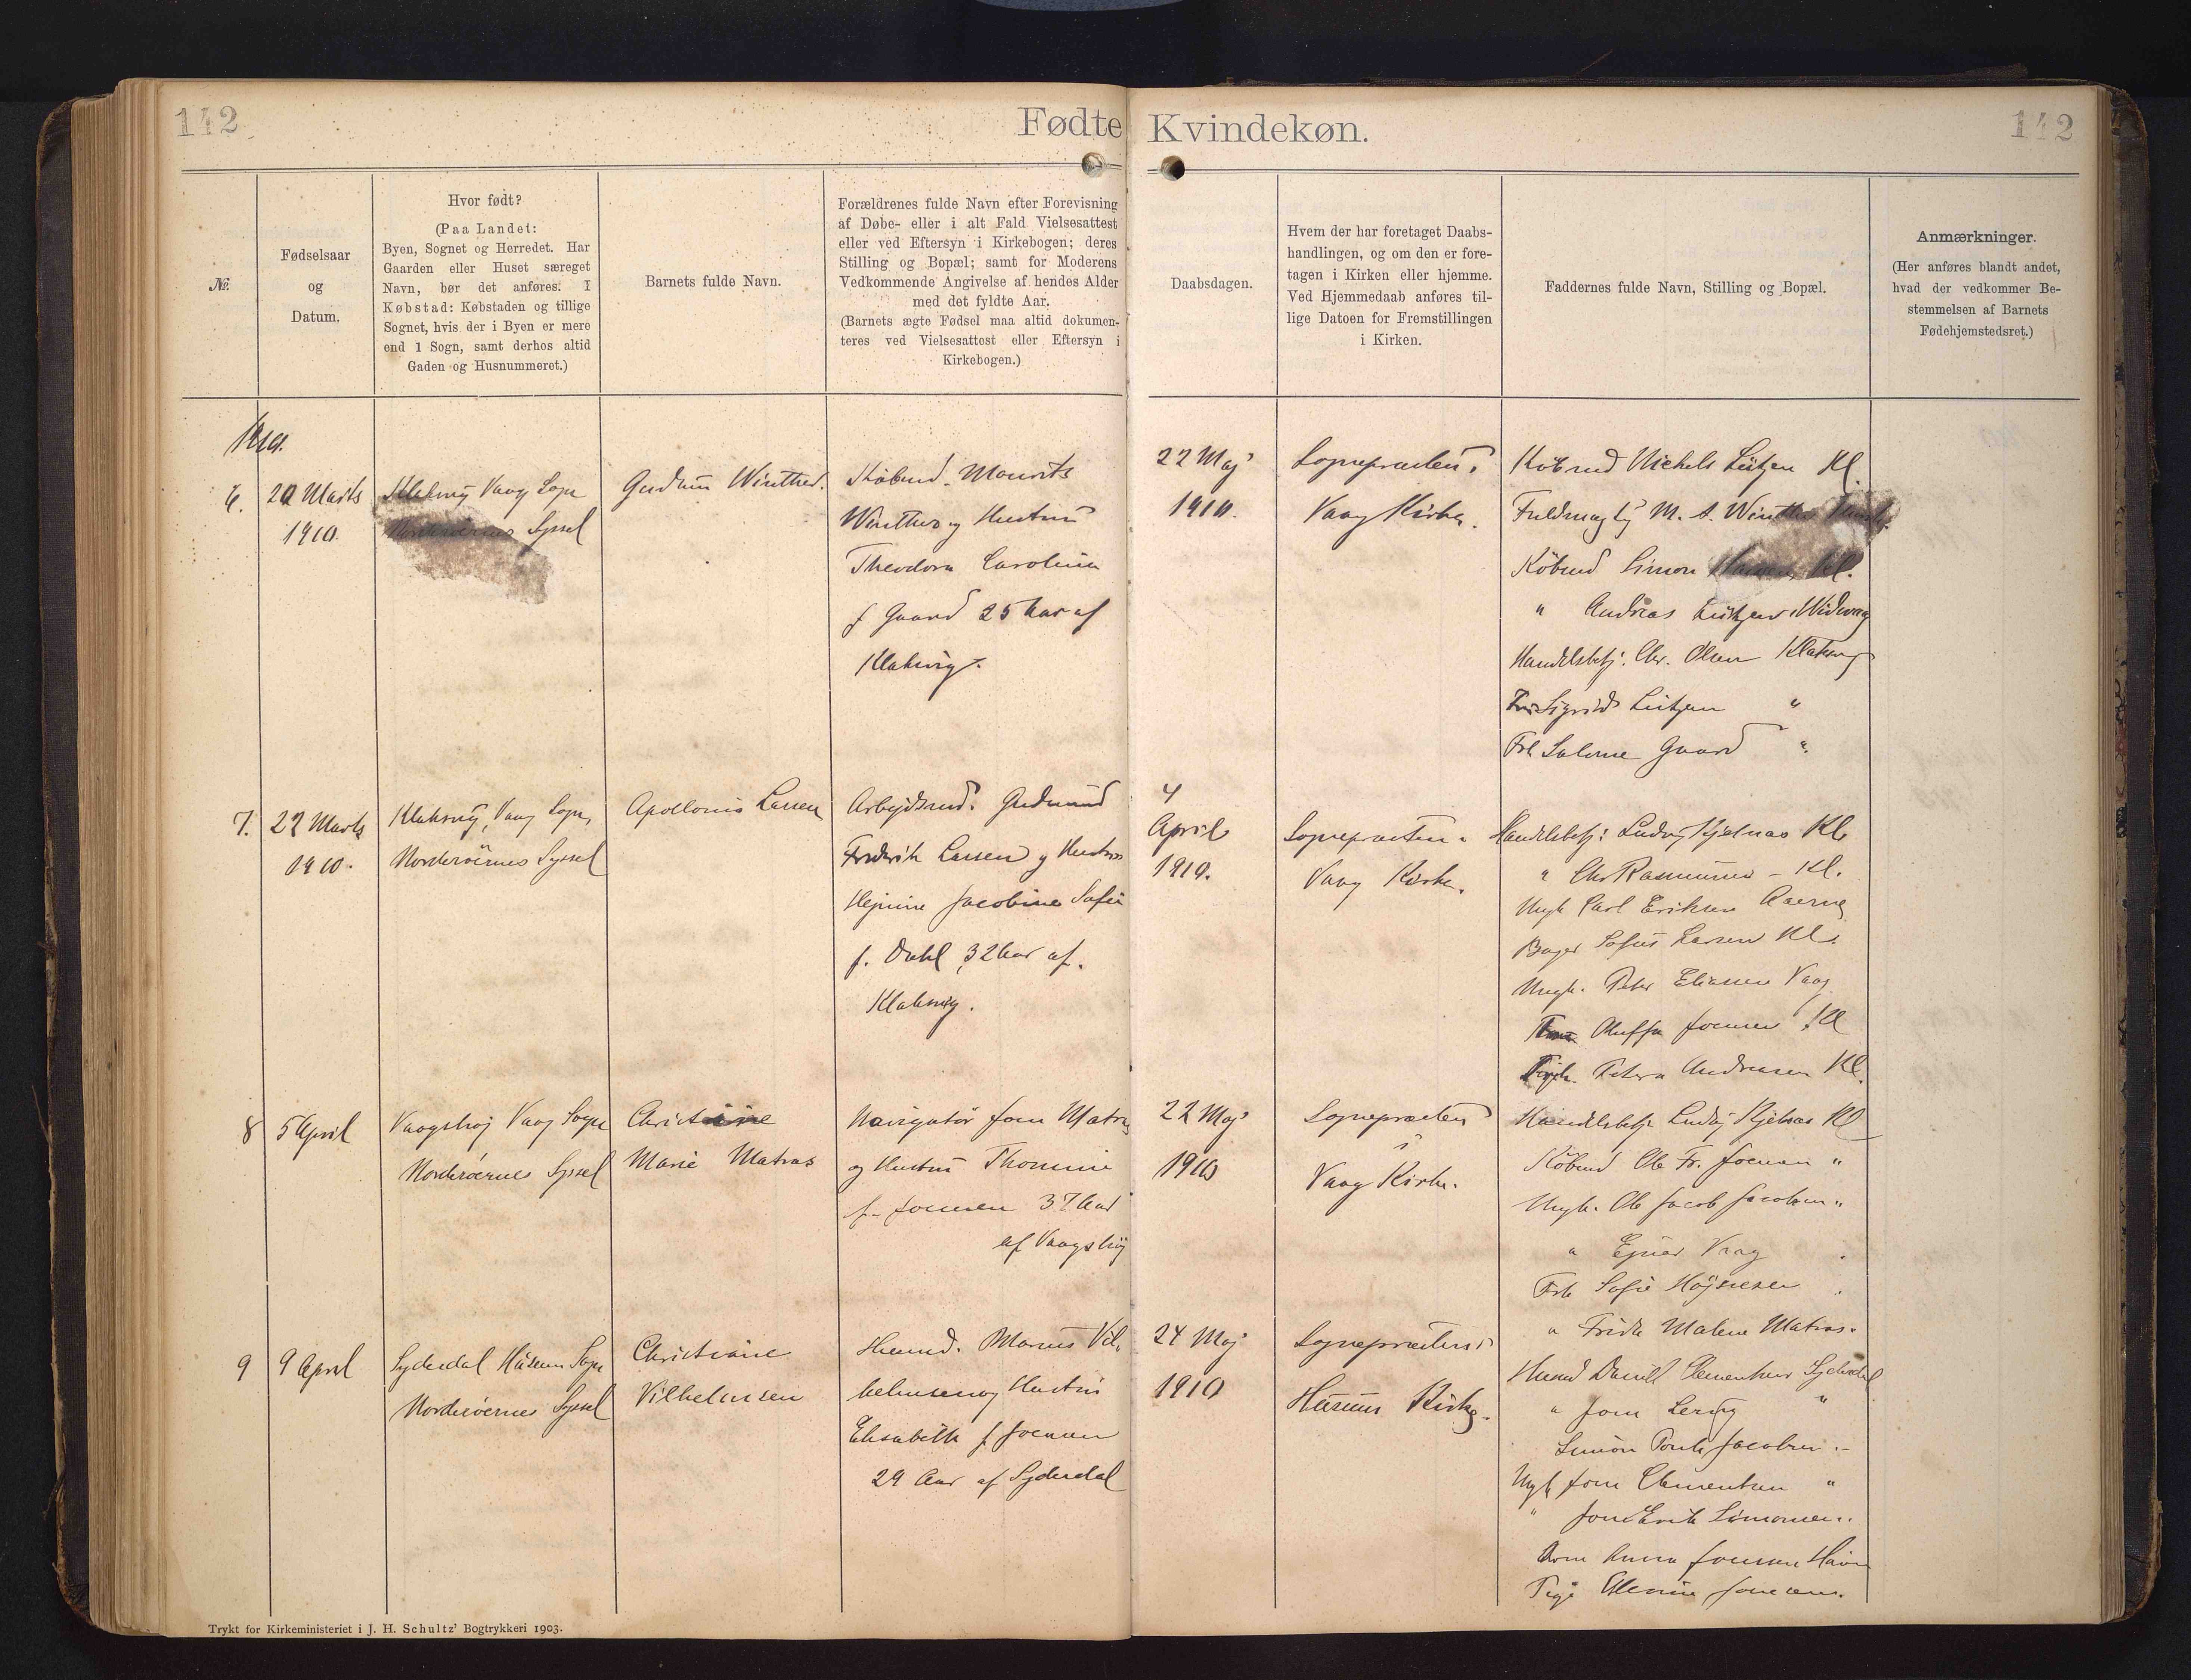 142
Fødte
Kvindekøn.
142
№.
Fødselsaar
og
Datum.
Hvor født?
(Paa Landet:
Byen, Sognet og Herredet. Har
Gaarden eller Huset særeget
Navn, bør det anføres. I
Købstad: Købstaden og tillige
Sognet, hvis der i Byen er mere
end 1 Sogn, samt derhos altid
Gaden og Husnummeret.)
Barnets fulde Navn.
Forældrenes fulde Navn efter Forevisning
af Døbe- eller i alt Fald Vielsesattest
eller ved Eftersyn i Kirkebogen; deres
Stilling og Bopæl; samt for Moderens
Vedkommende Angivelse af hendes Alder
med det fyldte Aar.
(Barnets ægte Fødsel maa altid dokumen-
teres ved Vielsesattest eller Eftersyn i
Kirkebogen.)
Daabsdagen.
Hvem der har foretaget Daabs-
handlingen, og om den er fore-
tagen i Kirken eller hjemme.
Ved Hjemmedaab anføres til-
lige Datoen for Fremstillingen
i Kirken.
Faddernes fulde Navn, Stilling og Bopæl.
Anmærkninger.
(Her anføres blandt andet,
hvad der vedkommer Be-
stemmelsen af Barnets
Fødehjemstedsret.)
6.
20 Marts
1910.
Klaksvig Vaag Sogn
Norderøernes Syssel
Gudrun Winther.
Købmd. Mourits
Winther og Hustru
Theodora Carolina
f Gaard 25 Aar af
Klaksvig.
22 Maj
1910.
Sognepræsten i
Vaag Kirke.
Købmd Michels Lützen Kl.
Fuldmægtig M. S. Winther
Købmd Simon Kl.
" Andreas Lützen Hvidevaag
Handelsbetj. Chr. Olsen Klaksvig
Sigrid Lützen "
Frk Salome Gaard "
7.
22 Marts
1910.
Klaksvig, Vaag Sogn,
Norderøernes Syssel
Apollonia Larsen
Arbejdsmd. Gudmund
Frederik Larsen og Hustru
Jacobine Sofie
f. Dahl 32 Aar af
Klaksvig.
4
April
1910.
Sognepræsten i
Vaag Kirke.
Handelsbetj: Ludvig Kjølnæs Kl.
" Chr Rasmussen - Kl.
Ungk Carl Eriksen
Bager Sofus Larsen Kl.
Ungk. Peter Eliasen Vaag
Oluffa Joensen Kl
Petra Andreasen Kl.
8
5 April
Vaagshøj Vaag Sogn
Norderøernes Syssel
Christine
Marie Matras
Navigatør Jom Matras
og Hustru Thomine
f. Joensen 37 Aar
af Vaagshøj
22 Maj
1910
Sognepræsten
i
Vaag Kirke.
Handelsbetj Ludvig Kjølnæs Kl
Købmd Ole Fr. Joensen "
Ungk. Ole Jacob Jacobsen "
" Ejnar Vaag
Frk Sofie Højgaard
" Frida Malene Matras.
9
9 April
Syderdal Husum Sogn
Norderøernes Syssel
Christiane
Vilhelmsen
Husmd. Marius Vil-
helmsen og Hustru
Elisabeth f Joensen
29 Aar af Syderdal
24 Maj
1910
Sognepræsten i
Husum Kirke.
Husmd Daniel Clementsen Syderdal
" Jom "
Simon Poul Jacobsen
Ungk Jom Clementsen "
" Simonsen
Anna Joensen
Joensen.
Trykt for Kirkeministeriet i J. H. Schultz' Bogtrykkeri 1903.